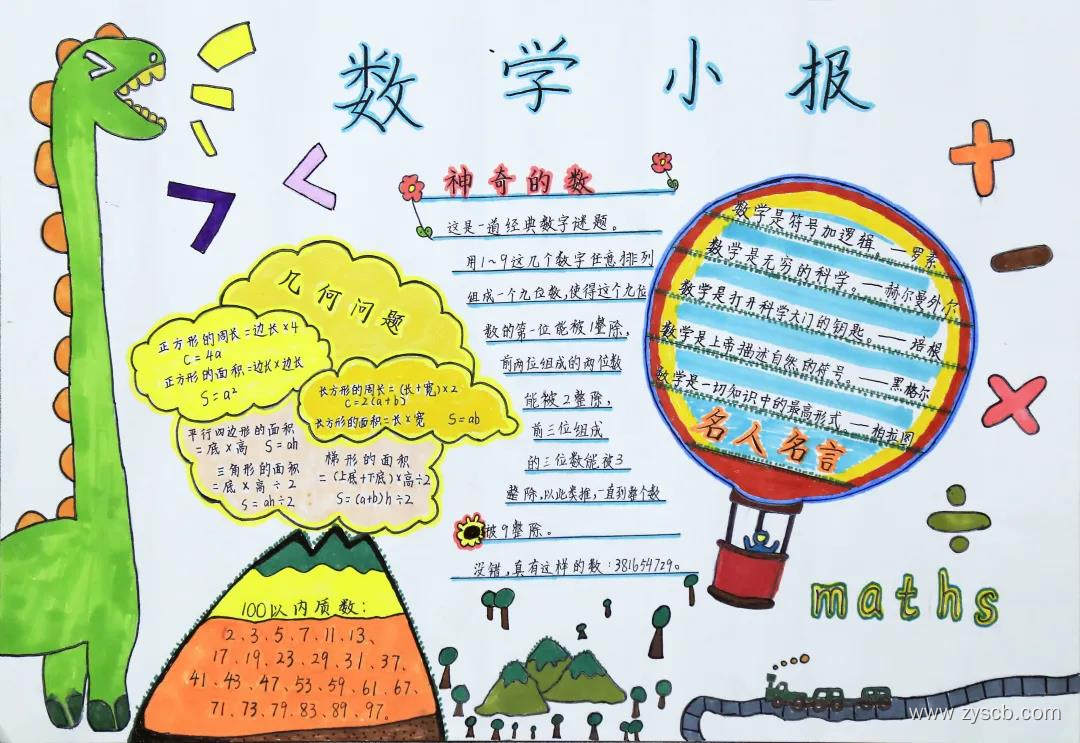 数学小报
神奇的数
这是一道经典数字谜题。
用1～9这几个数字任意排列
组成一个九位数,使得这个九位
数的第一位能被1整除,
前两位组成的两位数
能被2整除,
前三位组成
的三位数能被3
整除,以此类推,一直到整个数
被9整除。
没错,真有这样的数:381654729。
几何问题
正方形的周长=边长×4
C=4a
正方形的面积=边长×边长
S=a²
长方形的周长=(长+宽)×2
C=2(a+b)
长方形的面积=长×宽 S=ab
平行四边形的面积
=底×高 S=ah
三角形的面积
=底×高÷2
S=ah÷2
梯形的面积
=(上底+下底)×高÷2
S=(a+b)h÷2
100以内质数:
2、3、5、7、11、13、
17、19、23、29、31、37、
41、43、47、53、59、61、67、
71、73、79、83、89、97。
数学是符号加逻辑、——罗素
数学是无穷的科学。——赫尔曼外尔
数学是打开科学大门的钥匙。——培根
数学是上帝描述自然的符号。——黑格尔
数学是一切知识中的最高形式.——柏拉图
名人名言
maths
www.zyscb.com